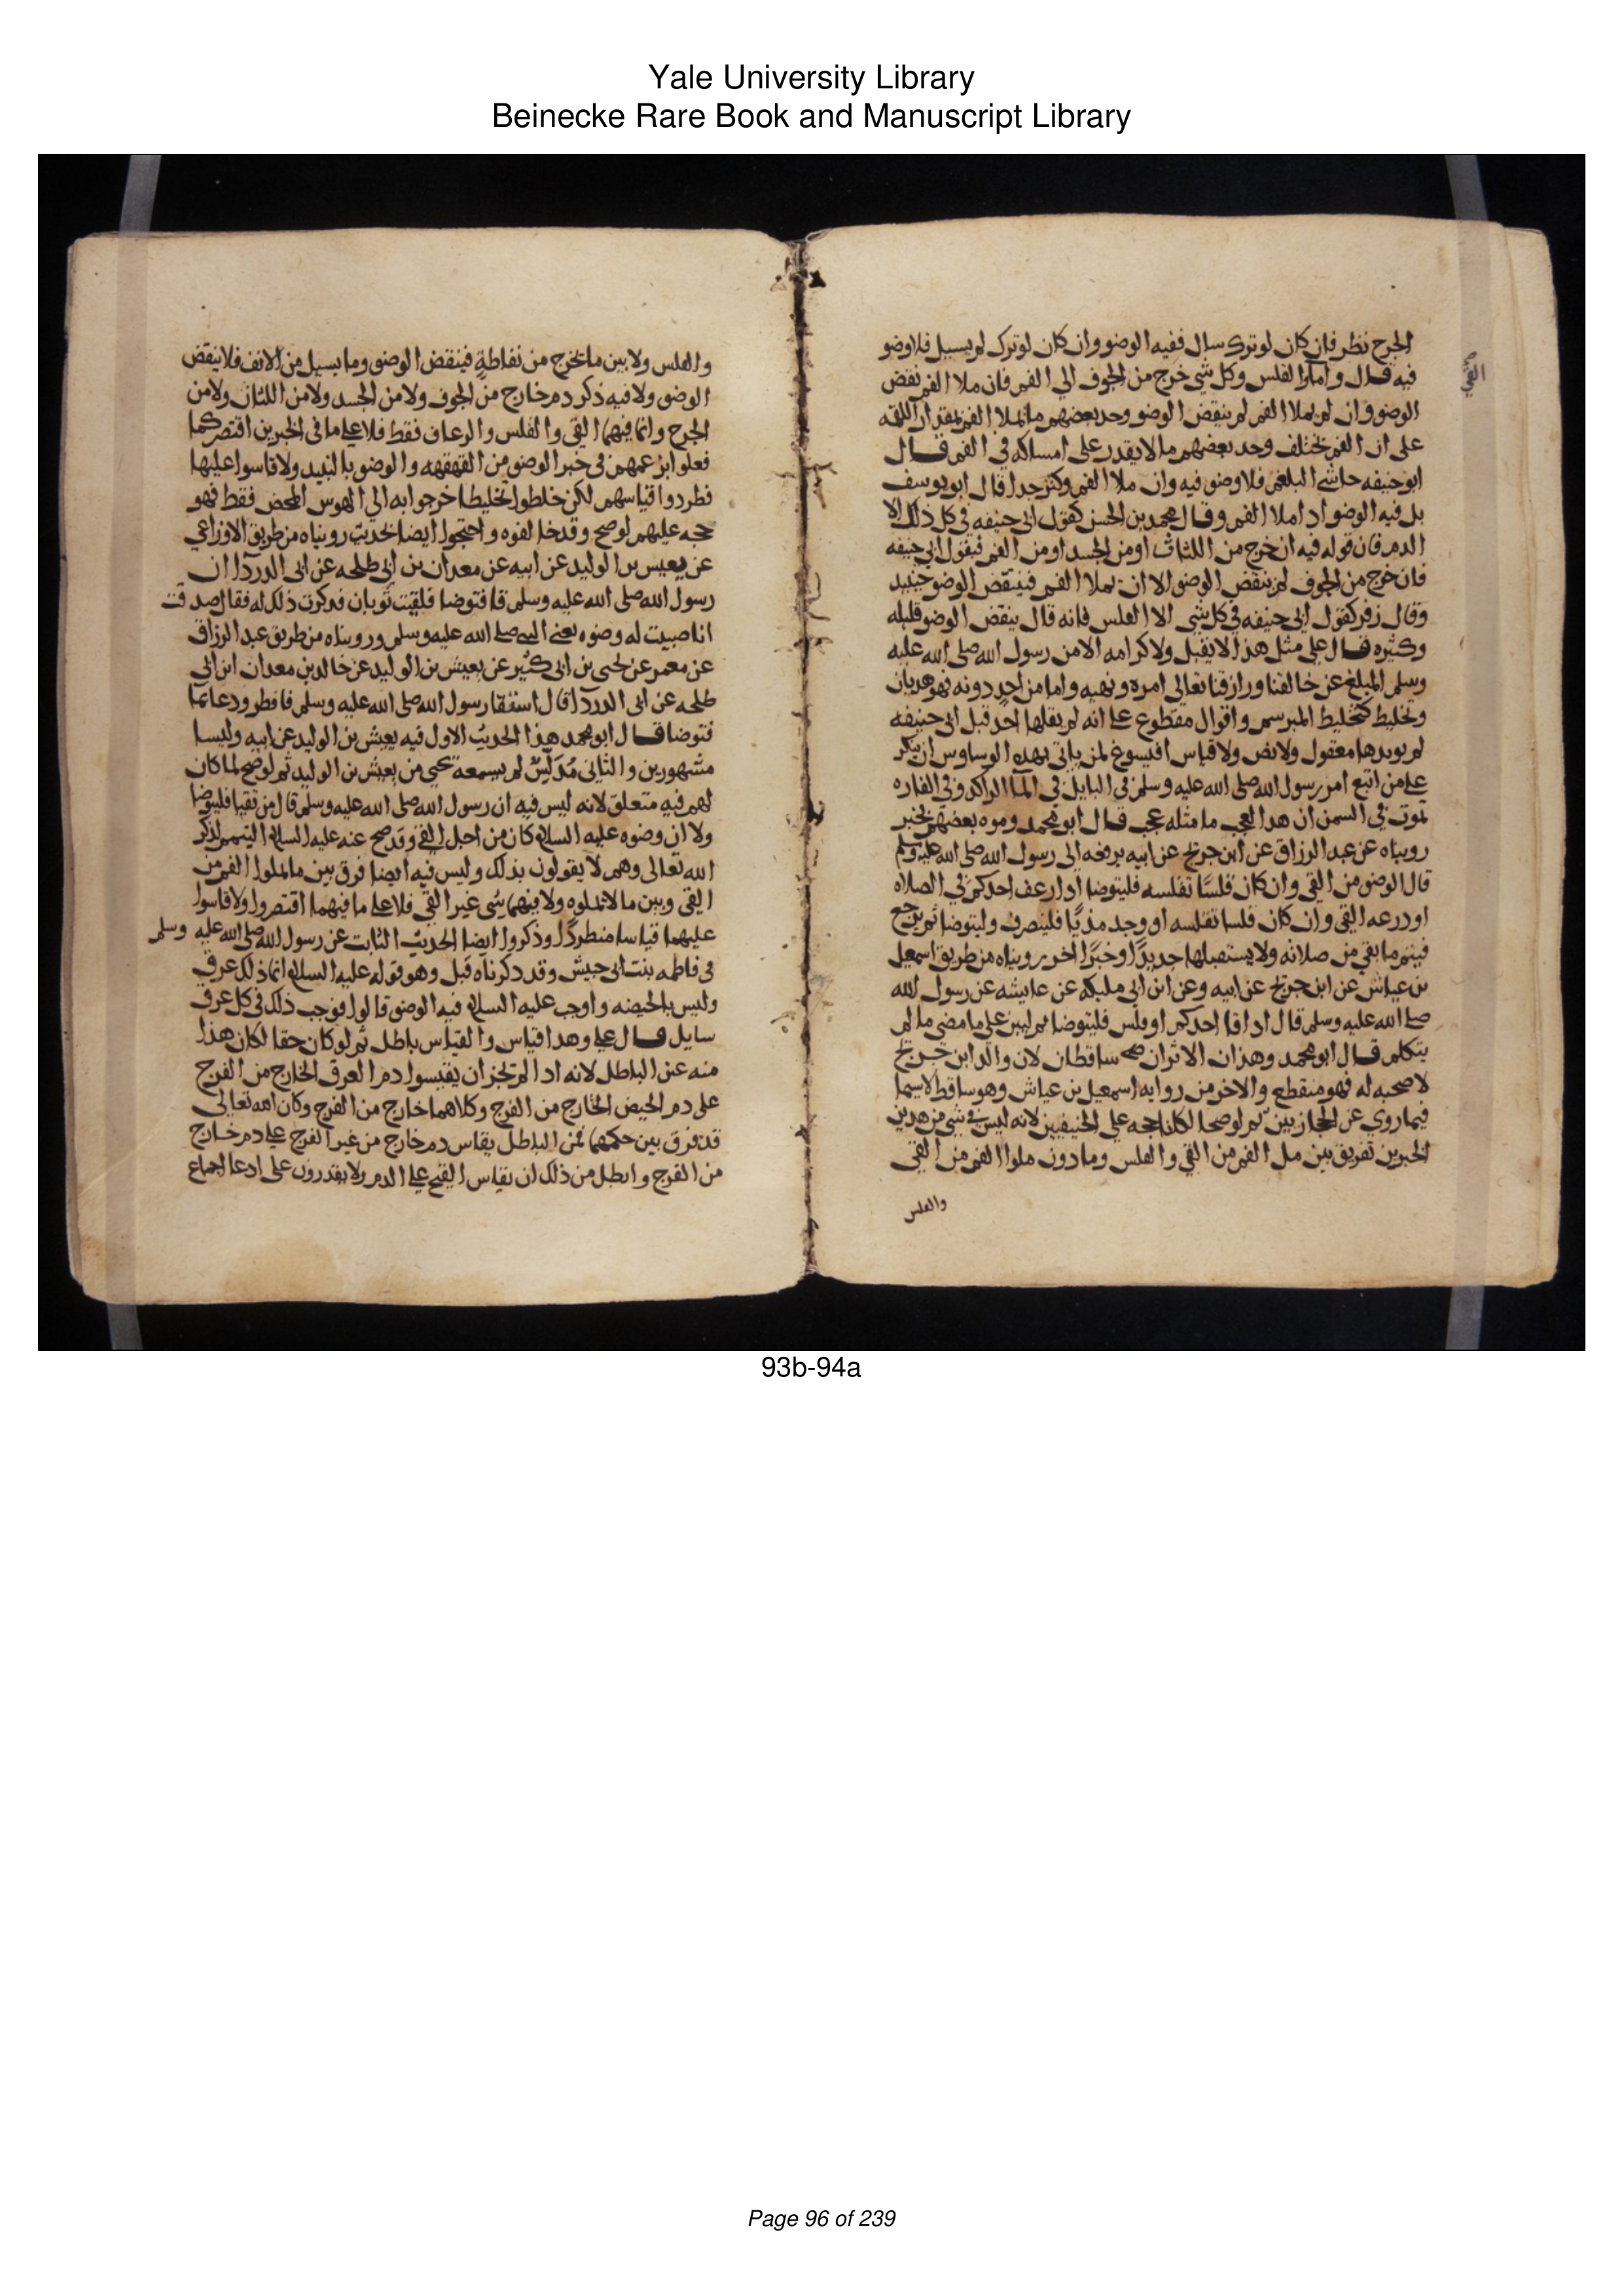 Yale University Library
Beinecke Rare Book and Manuscript Library
الجرح نظر فان كان لو ترك سال ففيه الوضو وان كان لو ترك لم يسيل فلا وضو
فيه قال واما القلس وكل شي خرج من الجوف الي الفم فان ملا الفم نقض
القي
الوضو وان لم يملا الفم لم ينقض الوضو وحد بعضهم ما يملا الفم بمقدار اللقمه
على ان الفم يختلف وحد بعضهم ما لا يقدر على امساكه في الفم قال
ابو حنيفه حاشي البلغم فلا وضو فيه وان ملا الفم وكثر جدا قال ابو يوسف
بل فيه الوضو ادا ملا الفم وقال محمد بن الحسن كقول ابي حنيفه في كل ذلك الا
الدم فان قوله فيه ان خرج من اللثات او من الجسد او من الفم فيقول ابي حنيفه
فان خرج من الجوف لم ينقض الوضو الا ان يملا الفم فينقض الوضو حينيد
وقال زفر كقول ابي حنيفه في كل شي الا القلس فانه قال ينقض الوضو قليله
وكثيره قال علي مثل هذا لا يقبل ولا كرامه الا من رسول الله صلى الله عليه
وسلم المبلغ عن خالقنا ورازقنا تعالى امره ونهيه واما من احد دونه فهو هديان
وتخليط كتخليط المبرسم واقوال مقطوع علي انه لم يقلها احد قبل ابي حنيفه
لم يويدها معقول ولا نص ولا قياس افيسوغ لمن ياتي بهده الوساوس ان ينكر
علي من اتبع امر رسول الله صلى الله عليه وسلم في البايل في المآ الراكد وفي الفاره
تموت في السمن ان هدا لعجب ما مثله عجب قال ابو محمد وموه بعضهم بخبر
رويناه عن عبد الرزاق عن ابن جريج عن ابيه يرفعه الى رسول الله صلى الله عليه وسلم
قال الوضو من القي وان كان قلسا تقلسه فليتوضا ادا رعف احدكم في الصلاه
او درعه القي وان كان قلسا تقلسه او وجد مذيا فلينصرف وليتوضا ثم يرجع
فيتم ما بقي من صلاته ولا يستقبلها جديدا وخبرا اخر رويناه من طريق اسمعيل
بن عياش عن ابن جريج عن ابيه وعن ابن ابي مليكه عن عايشه عن رسول الله
صلي الله عليه وسلم قال ادا قا احدكم او قلس فليتوضا ثم ليبن على ما مضى ما لم
يتكلم قال ابو محمد وهذان الاثران ساقطان لان والد ابن جريج
لا صحبه له فهو منقطع والاخر من روايه اسمعيل بن عياش وهو ساقط لا سيما
فيما روي عن الحجازيين ثم لو صحا لكانا حجه علي الحنيفيين لانه ليس في شي من هدين
الخبرين تفريق بين مل الفم من القي والقلس وما دون ملوا الفم من القي
والقلس
والقلس ولا بين ما يخرج من نفاطة فينقض الوضو وما يسيل من الانف فلا ينقض
الوضو ولا فيه ذكر دم خارج من الجوف ولا من الجسد ولا من اللثات ولا من
الجرح وانما فيهما القي والقلس والرعاف فقط فلا علي ما في الخبرين اقتصر كما
فعلوا بزعمهم في خبر الوضو من القهقهه والوضو بالنبيد ولا قاسوا عليها
فطردوا قياسهم لكن خلطوا تخليطا خرجوا به الى الهوس المحض فقط فهو
حجه عليهم لو صح وقد خالفوه واحتجوا ايضا بحديث رويناه من طريق الاوزاعي
عن يعيش بن الوليد عن ابيه عن معدان بن ابي طلحه عن ابي الدردآ ان
رسول الله صلى الله عليه وسلم قا فتوضا فلقيت ثوبان فدكرت ذلك له فقال صدقت
انا صببت له وضوه يعني النبي صلي الله عليه وسلم ورويناه من طريق عبد الرزاق
عن معمر عن يحيي بن ابي كثير عن يعيش بن الوليد عن خالد بن معدان ابن ابي
طلحه عن ابي الدردآ قال استقا رسول الله صلى الله عليه وسلم فافطر ودعا بما
فتوضا قال ابو محمد هذا الحديث الاول فيه يعيش بن الوليد عن ابيه وليسا
مشهورين والثاني مدلس لم يسمعه يحيي من يعيش بن الوليد ثم لو صح لما كان
لهم فيه متعلق لانه ليس فيه ان رسول الله صلى الله عليه وسلم قال من تقيا فليتوضا
ولا ان وضوه عليه السلم كان من اجل القي وقد صح عنه عليه السلم التيمم لذكر
الله تعالى وهم لا يقولون بذلك وليس فيه ايضا فرق بين ما يملوا الفم من
القي وبين ما لا يملوه ولا فيهما شي غير القي فلا علي ما فيهما اقتصروا ولا قاسوا
عليهما قياسا منطردا وذكروا ايضا الحديث الثابت عن رسول الله صلى الله عليه وسلم
في فاطمه بنت ابي حبيش وقد دكرناه قبل وهو قوله عليه السلم انما ذلك عرق
وليس بالحيضه واوجب عليه السلم فيه الوضو قالوا فوجب ذلك في كل عرق
سايل قال علي وهدا قياس والقياس باطل ثم لو كان حقا لكان هذا
منه عين الباطل لانه ادا لم يجز ان يقيسوا دم العرق الخارج من الفرج
على دم الحيض الخارج من الفرج وكلاهما خارج من الفرج وكان الله تعالى
قد فرق بين حكمهما فمن الباطل يقاس دم خارج من غير الفرج علي دم خارج
من الفرج وابطل من ذلك ان يقاس القيح علي الدم ولا يقدرون على ادعا اجماع
93b-94a
Page 96 of 239